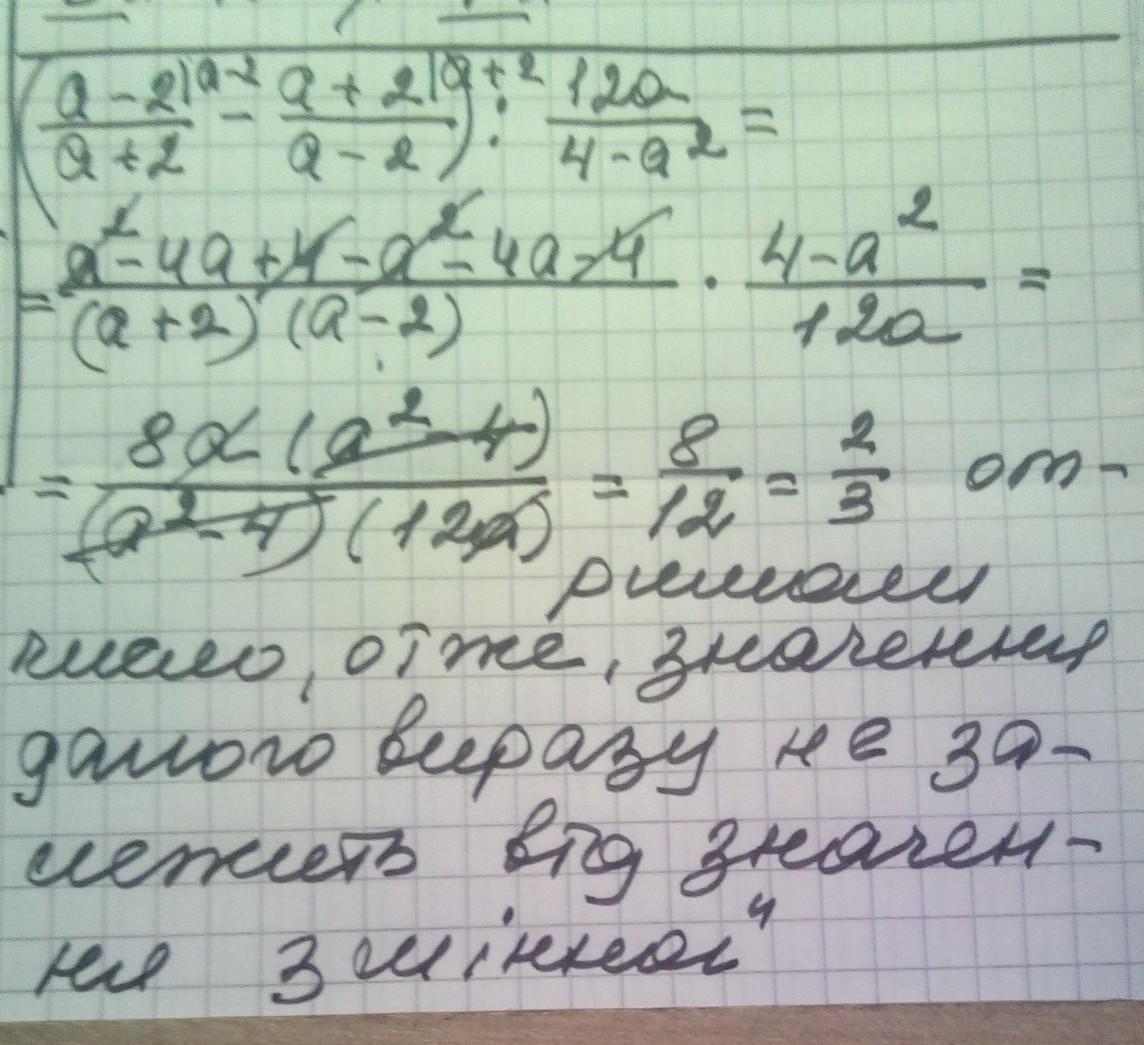 (a-2|a-2/a+2 - a+2|a+2/a-2) : 12a/4-a² =
= a²-4a+4-a²-4a-4/(a+2)(a-2) · 4-a²/12a =
= 8a(a²-4)/(a²-4)(12a) = 8/12 = 2/3 от-
римали
число, отже, значення
даного виразу не за-
лежить від значен-
ня змінної